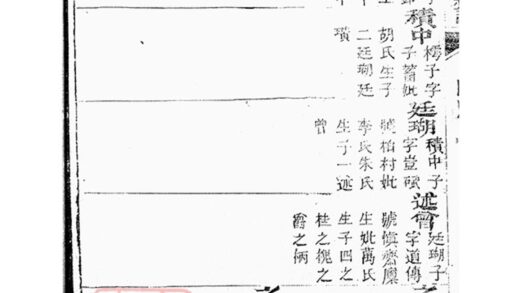 積中
子字
子蓄妣
胡氏生子
二廷瑚廷
璜
廷瑚
積中子
字豈碩
號柏村妣
李氏朱氏
生子一述
曾
述曾
廷瑚子
字道傳
號慎齋廩
生妣萬氏
生子四之
桂之槐之
爵之炳